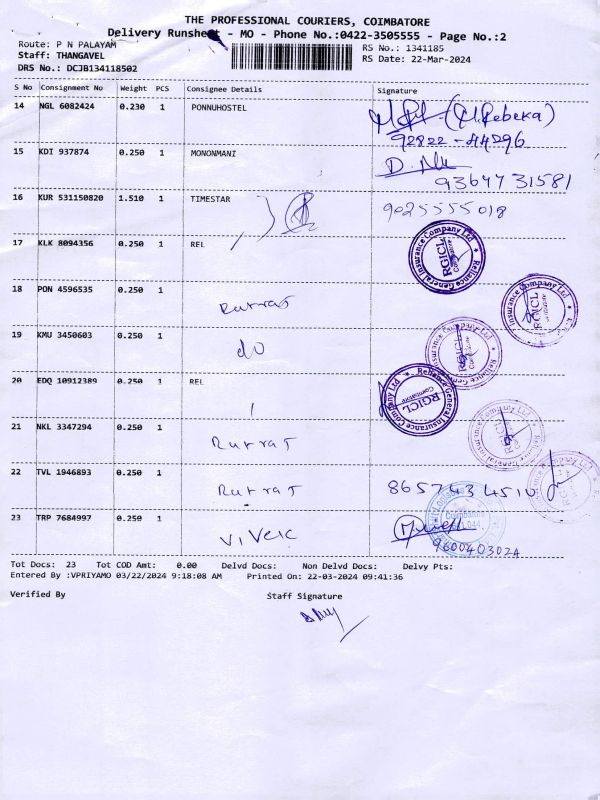 THE PROFESSIONAL COURIERS, COIMBATORE
Delivery Runsheet - MO - Phone No.:0422-3505555 - Page No.:2
Route: P N PALAYAM
RS No.: 1341185
Staff: THANGAVEL
RS Date: 22-Mar-2024
DRS No.: DCJB134118502
S No Consignment No Weight PCS Consignee Details Signature
14 NGL 6082424 0.230 1 PONNUHOSTEL (M.Rebeka)
92822-44296
15 KDI 937874 0.250 1 MONONMANI
9364731581
16 KUR 531150820 1.510 1 TIMESTAR 9025555018
17 KLK 8094356 0.250 1 REL
Reliance General Insurance Company Ltd
RGICL
Coimbatore
18 PON 4596535 0.250 1
Insurance Company Ltd
RGICL
19 KMU 3450603 0.250 1 do
20 EDQ 10912389 0.250 1 REL
Reliance General Insurance Company Ltd
RGICL
Coimbatore
21 NKL 3347294 0.250 1
22 TVL 1946893 0.250 1
23 TRP 7684997 0.250 1 Vivek
9600403024
Tot Docs: 23 Tot COD Amt: 0.00 Delvd Docs: Non Delvd Docs: Delvy Pts:
Entered By :VPRIYAMO 03/22/2024 9:18:08 AM Printed On: 22-03-2024 09:41:36
Verified By Staff Signature